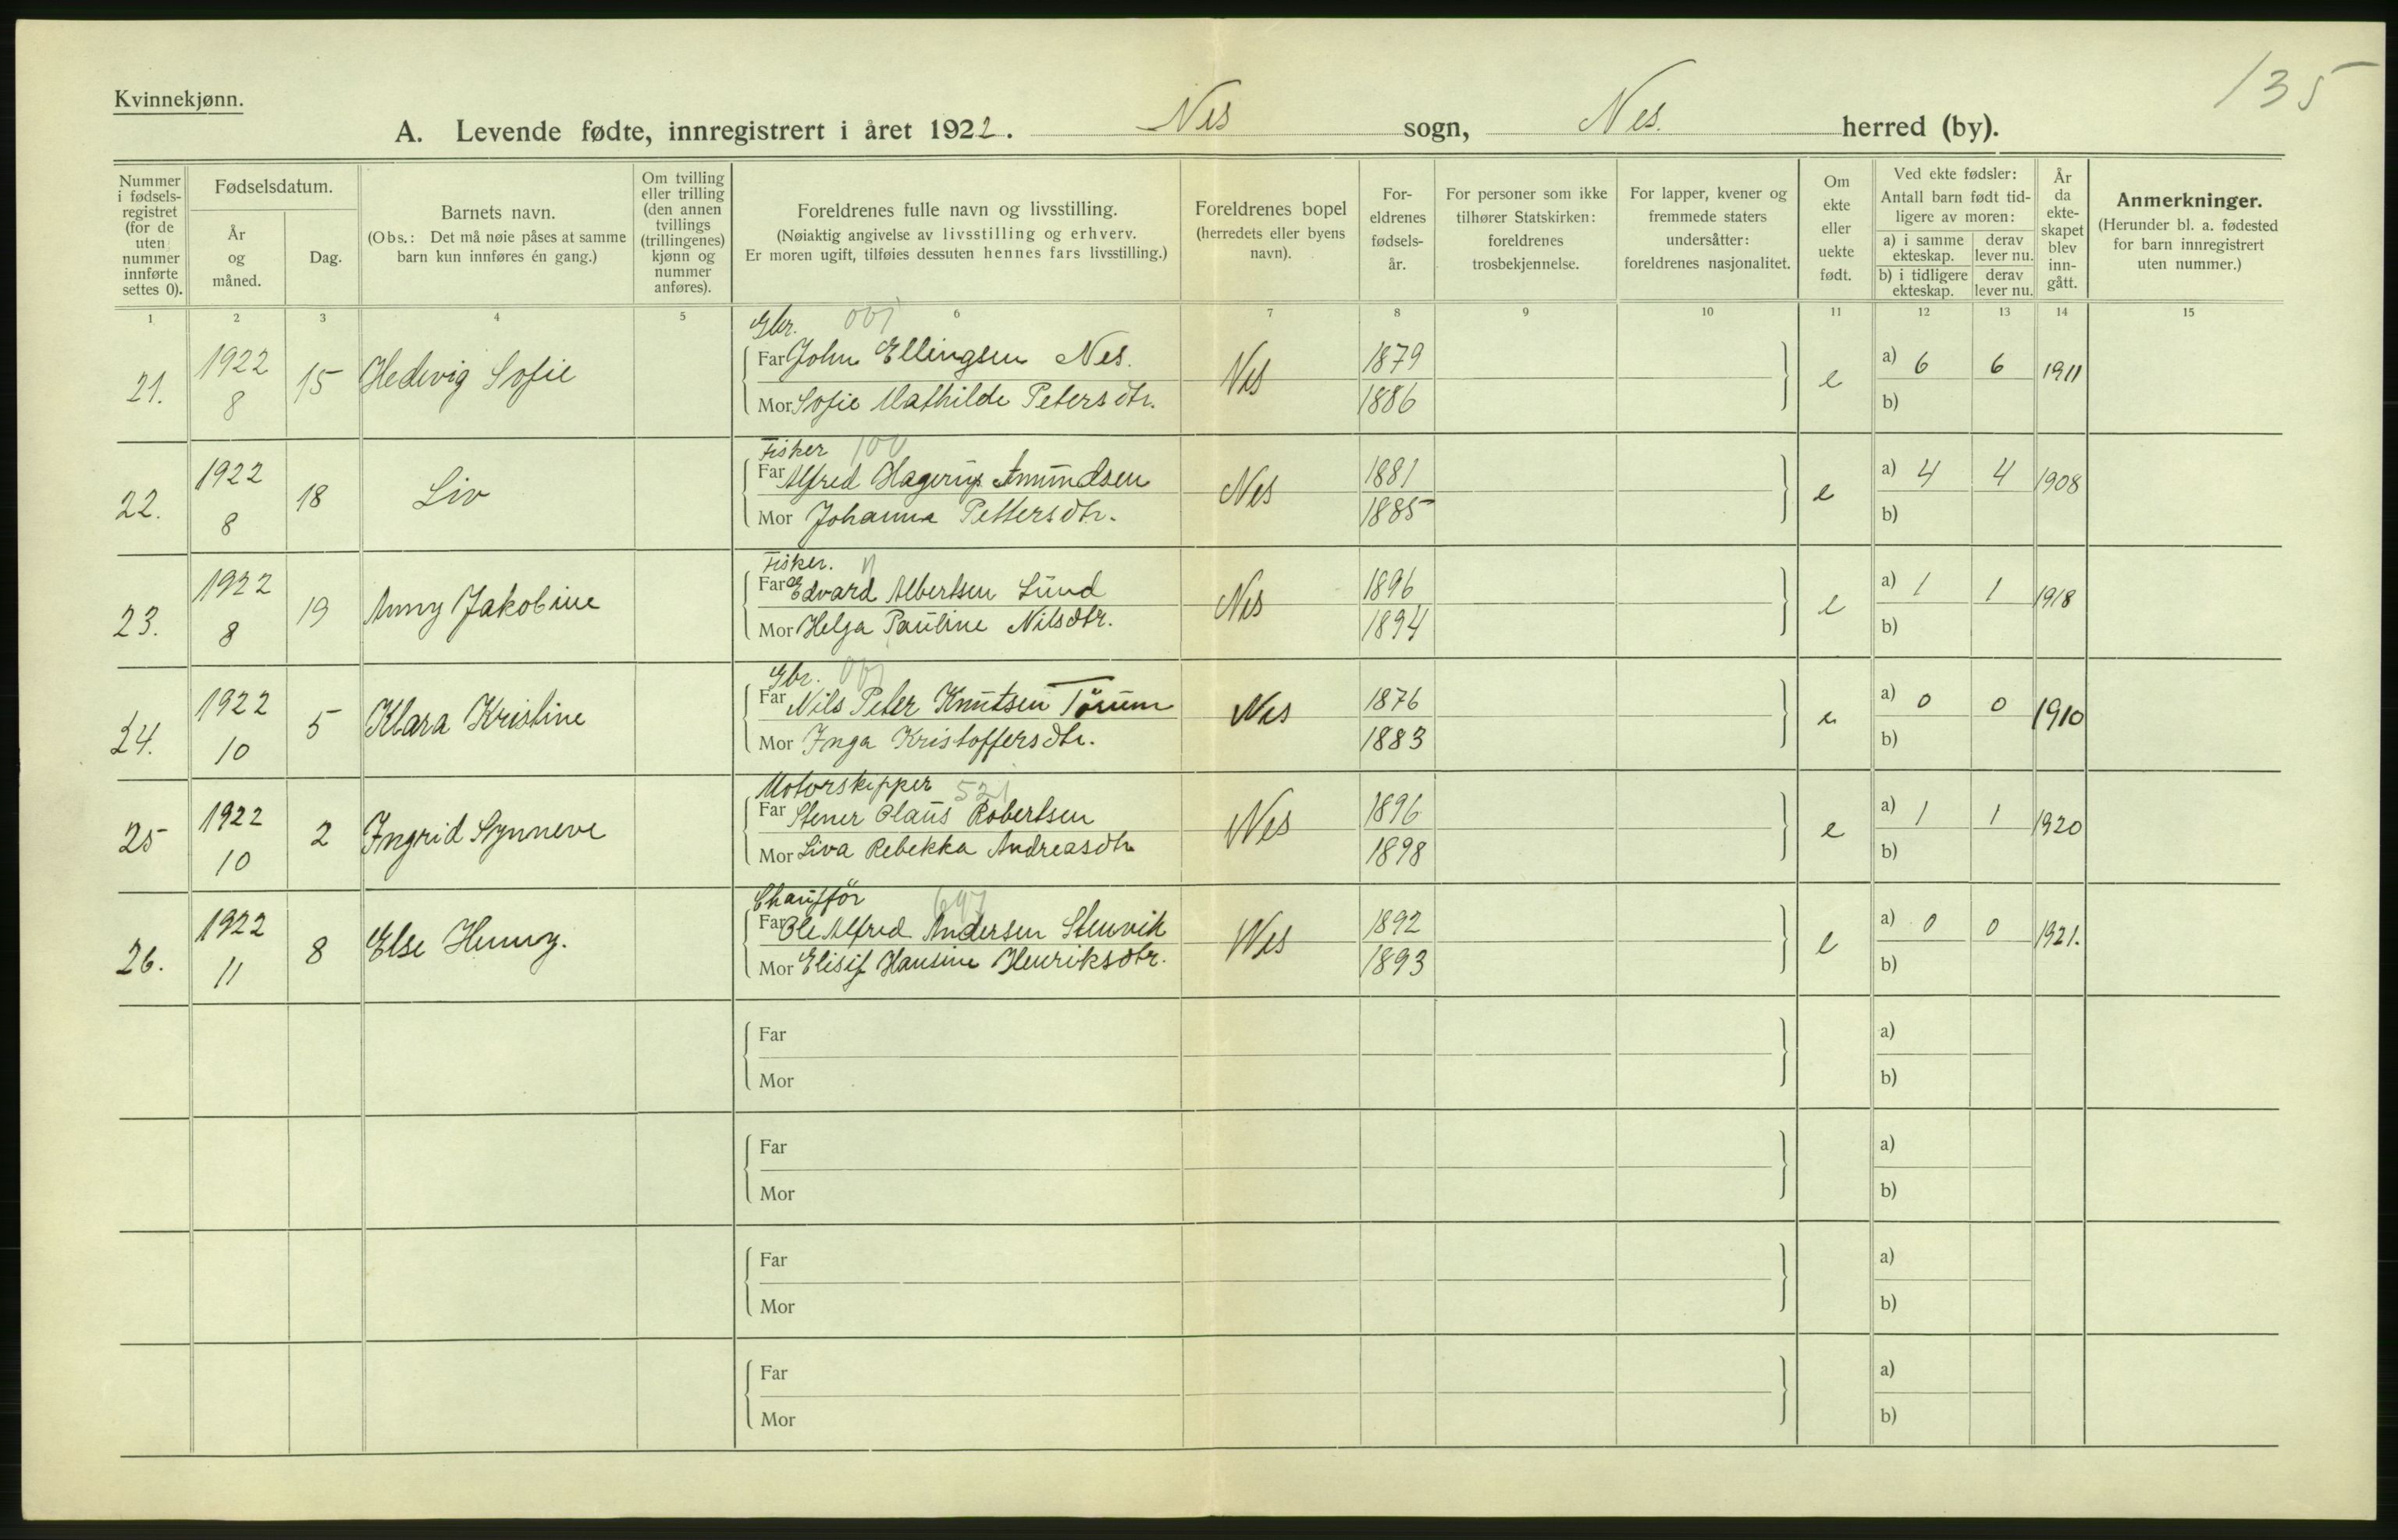 135
Kvinnekjønn.
A. Levende fødte, innregistrert i året 1922. Nes sogn, Nes. herred (by).
Nummer i fødsels-registret (for de uten nummer innførte settes 0).
Fødselsdatum.
År og måned.
Dag.
Barnets navn.
(Obs.: Det må nøie påses at samme barn kun innføres én gang.)
Om tvilling eller trilling (den annen tvillings (trillingenes) kjønn og nummer anføres).
Foreldrenes fulle navn og livsstilling.
(Nøiaktig angivelse av livsstilling og erhverv.
Er moren ugift, tilføies dessuten hennes fars livsstilling.)
Foreldrenes bopel
(herredets eller byens navn).
For-eldrenes fødsels-år.
For personer som ikke tilhører Statskirken: foreldrenes trosbekjennelse.
For lapper, kvener og fremmede staters undersåtter: foreldrenes nasjonalitet.
Om ekte eller uekte født.
Ved ekte fødsler:
Antall barn født tid-ligere av moren:
a) i samme ekteskap.
derav lever nu.
b) i tidligere ekteskap.
derav lever nu.
År da ekte-skapet blev inn-gått.
Anmerkninger.
(Herunder bl. a. fødested for barn innregistrert uten nummer.)
1 2 3 4 5 6 7 8 9 10 11 12 13 14 15
Gbr. 001
21. 1922 8 15 Hedvig Sofie
Far John Ellingsen Nes. Nes 1879 e a) 6 6 1911
Mor Sofie Mathilde Petersdtr. 1886 b)
Fisker 100
22. 1922 8 18 Liv
Far Alfred Hagerup Amundsen Nes 1881 e a) 4 4 1908
Mor Johanna Pettersdtr. 1885 b)
Fisker. "
23. 1922 8 19 Anny Jakobine
Far Edvard Albertsen Lund Nes 1896 e a) 1 1 1918
Mor Helga Pauline Nilsdtr. 1894 b)
Gbr. 001
24. 1922 10 5 Klara Kristine
Far Nils Peter Knutsen Tørum Nes 1876 e a) 0 0 1910
Mor Inga Kristoffersdtr. 1883 b)
Motorskipper 521
25 1922 10 2 Ingrid Synneve
Far Stener Olaus Robertsen Nes 1896 e a) 1 1 1920
Mor Liva Rebekka Andreasdtr 1898 b)
Chaufför 697
26. 1922 11 8 Else Henny.
Far Ole Alfred Andersen Stenvik Nes 1892 e a) 0 0 1921.
Mor Elisif Hansine Henriksdtr. 1893 b)
Far a)
Mor b)
Far a)
Mor b)
Far a)
Mor b)
Far a)
Mor b)